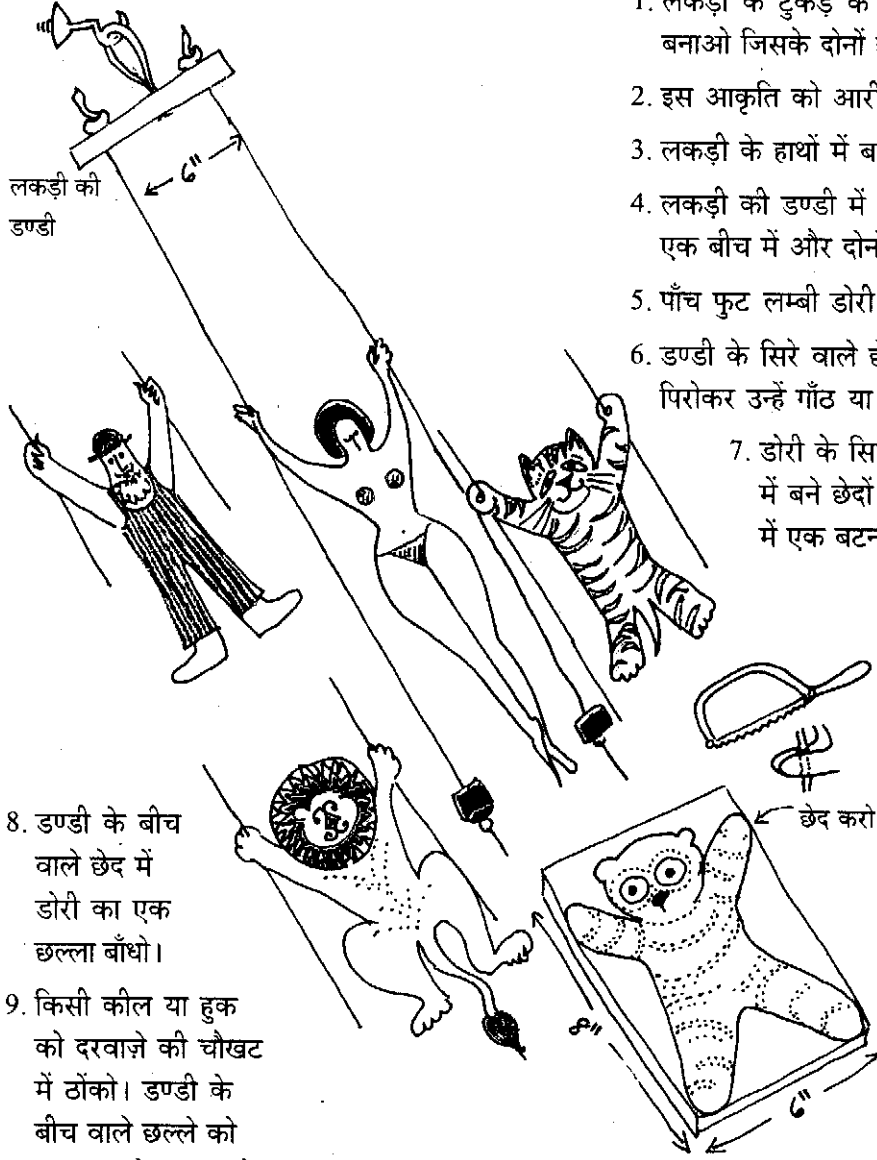 1. लकड़ी के टुकड़े के
बनाओ जिसके दोनों
2. इस आकृति को आरी
3. लकड़ी के हाथों में
4. लकड़ी की डण्डी में
एक बीच में और दोनों
5. पाँच फुट लम्बी डोरी
6. डण्डी के सिरे वाले
पिरोकर उन्हें गाँठ या
7. डोरी के
में बने छेदों
में एक बटन
6"
लकड़ी की
डण्डी
छेद करो
8"
6"
8. डण्डी के बीच
वाले छेद में
डोरी का एक
छल्ला बाँधो।
9. किसी कील या हुक
को दरवाज़े की चौखट
में ठोंको। डण्डी के
बीच वाले छल्ले को